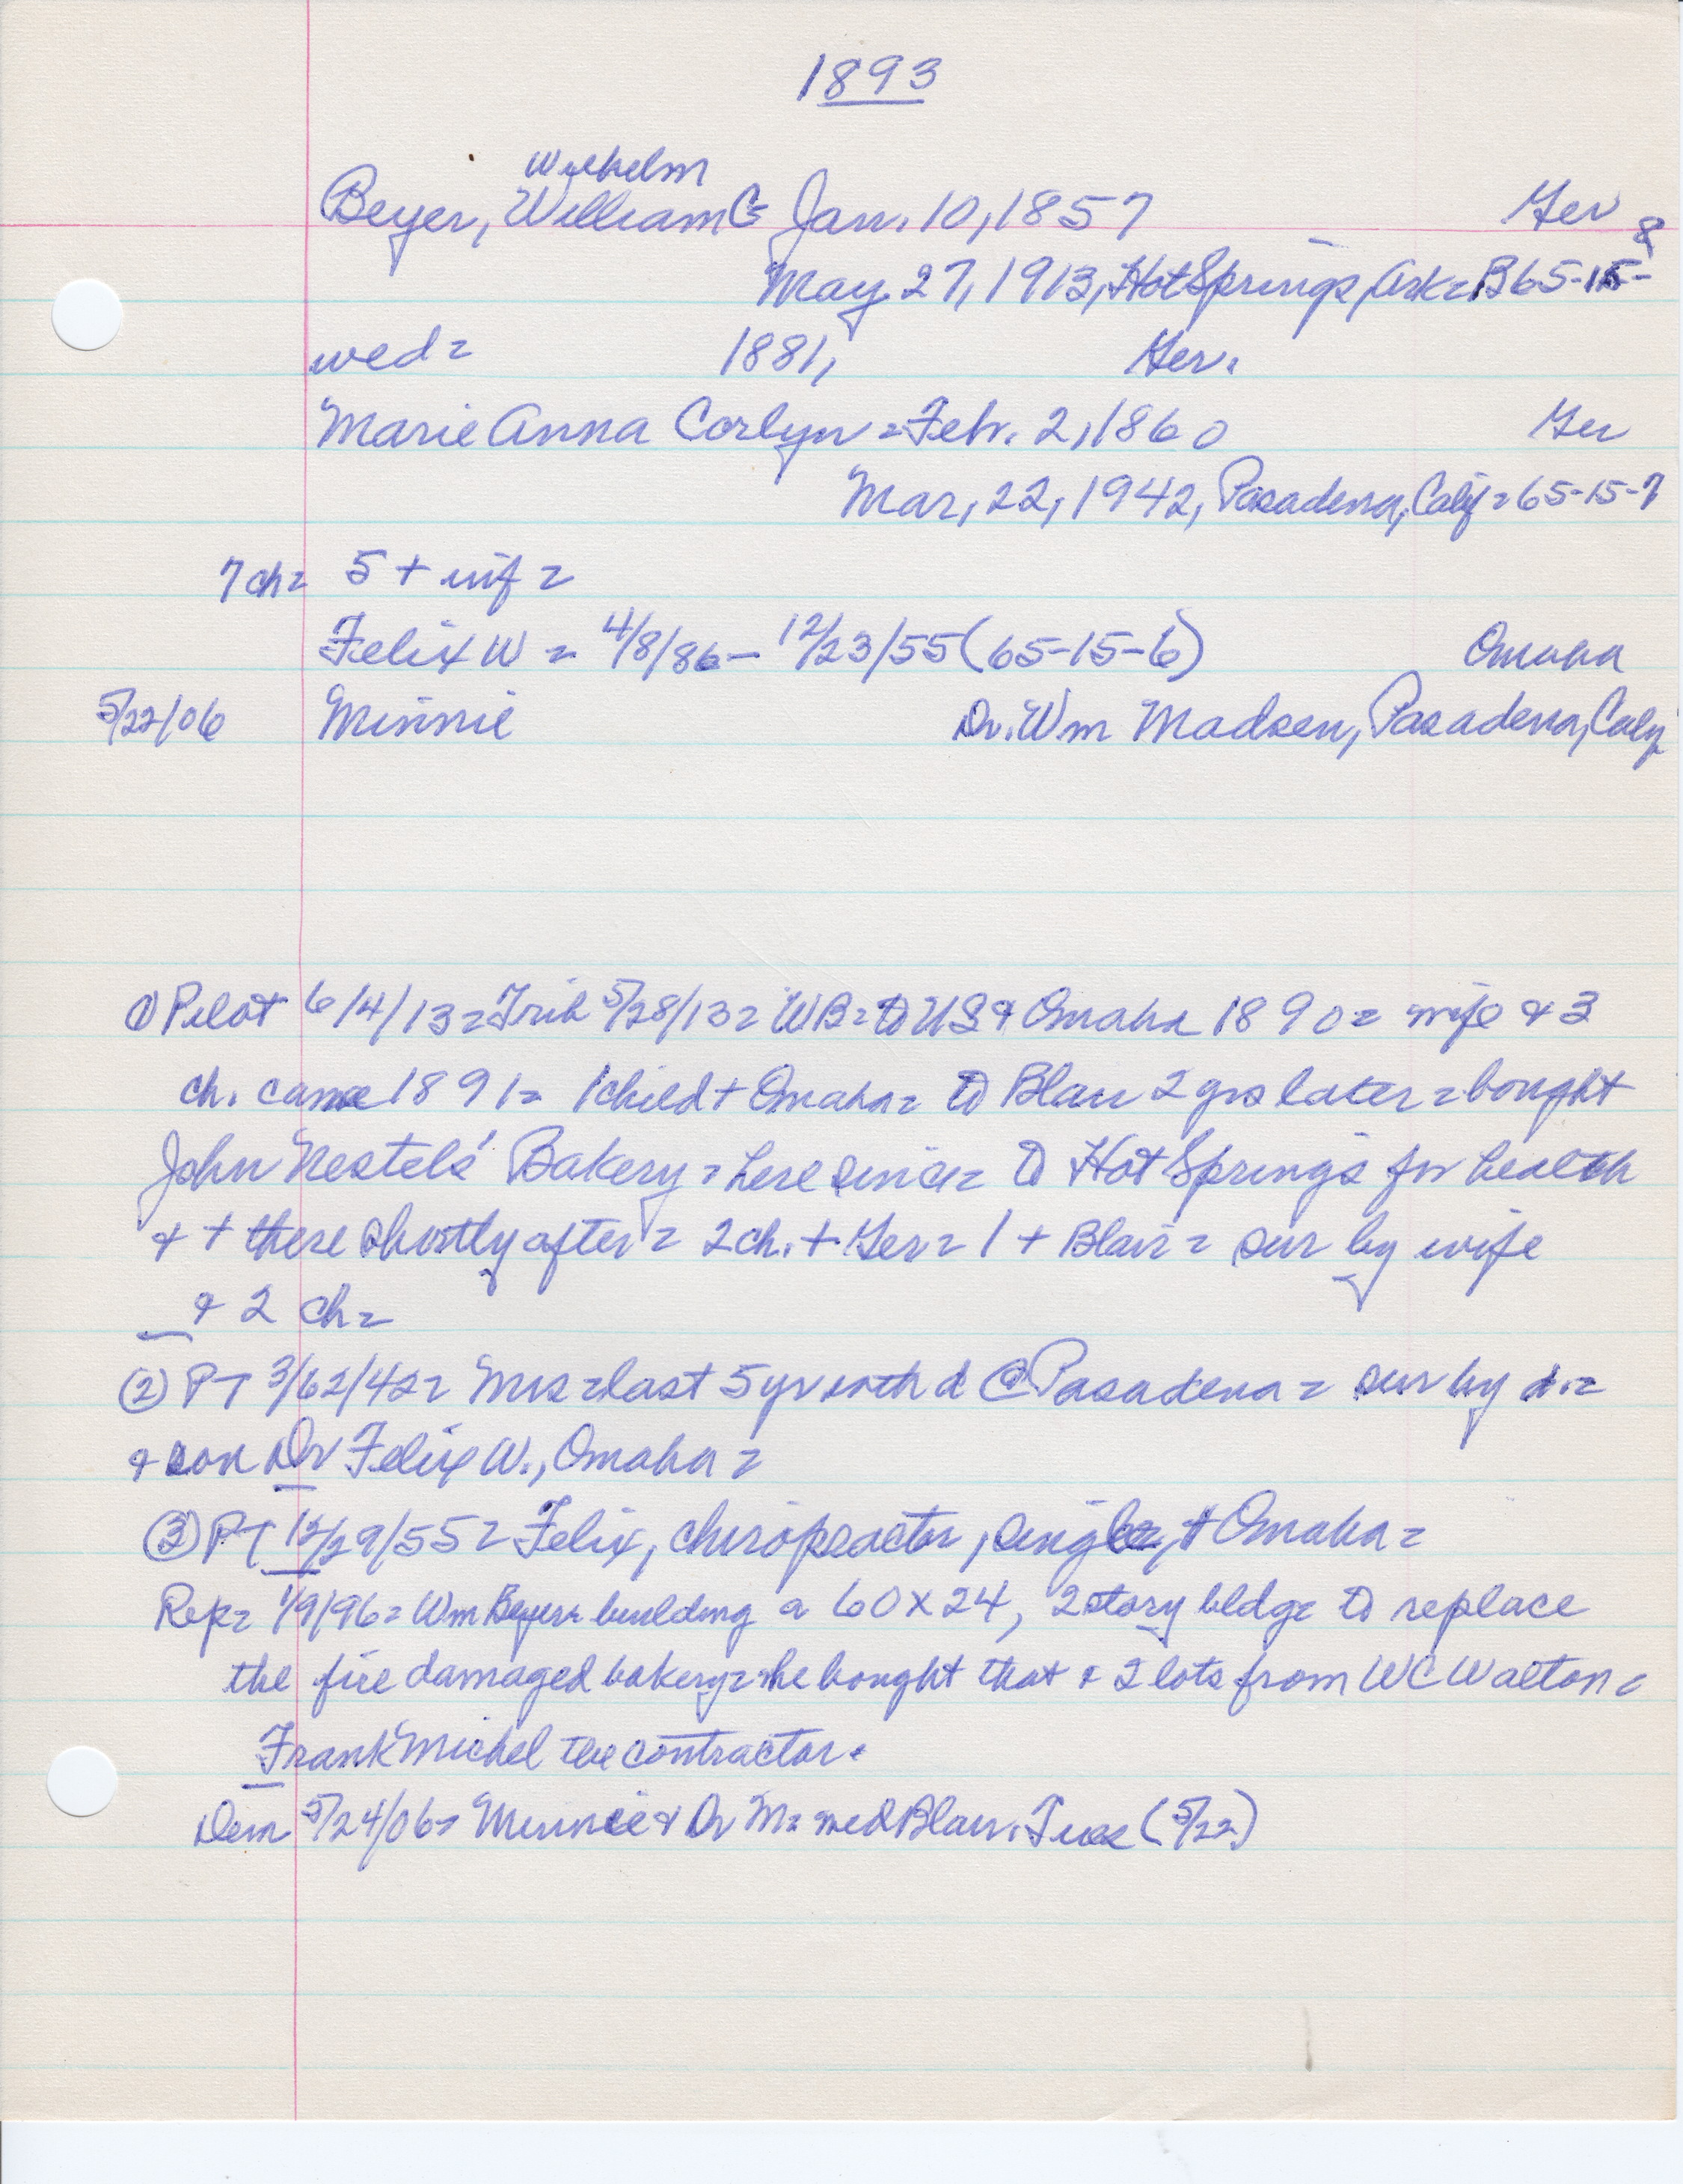 1893
Wilhelm
Beyer, William C = Jan. 10, 1857 Ger
8
May 27, 1913, Hot Springs, Ark = B65-15-
wed = 1881, Ger.
Marie Anna Corlyn = Feb. 2, 1860 Ger
Mar, 22, 1942, Pasadena, Calif = 65-15-7
7 ch = 5 + inf =
Felix W = 4/8/86 - 12/23/55 (65-15-6) Omaha
5/22/06 Minnie Dr. Wm Madsen, Pasadena, Calif
① Pilot 6/4/13 = Trib 5/28/13 = WB = to US & Omaha 1890 = wife & 3
ch. came 1891 = 1 child + Omaha = to Blair 2 yrs later = bought
John Nestels' Bakery = here since = to Hot Springs for health
& + there shortly after = 2 ch. + Ger = 1 + Blair = sur by wife
& 2 ch =
② PT 3/62/42 = Mrs = last 5 yr with d @ Pasadena = sur by d. =
& son Dr Felix W., Omaha =
③ PT 12/29/55 = Felix, chiropractor, single, + Omaha =
Rep = 1/9/96 = Wm Beyer = building a 60 x 24, 2 story bldg = to replace
the fire damaged bakery = he bought that & 2 lots from WC Walton =
Frank Michel the contractor.
Dem 5/24/06 = Minnie & Dr M = wed Blair. Tues (5/22)